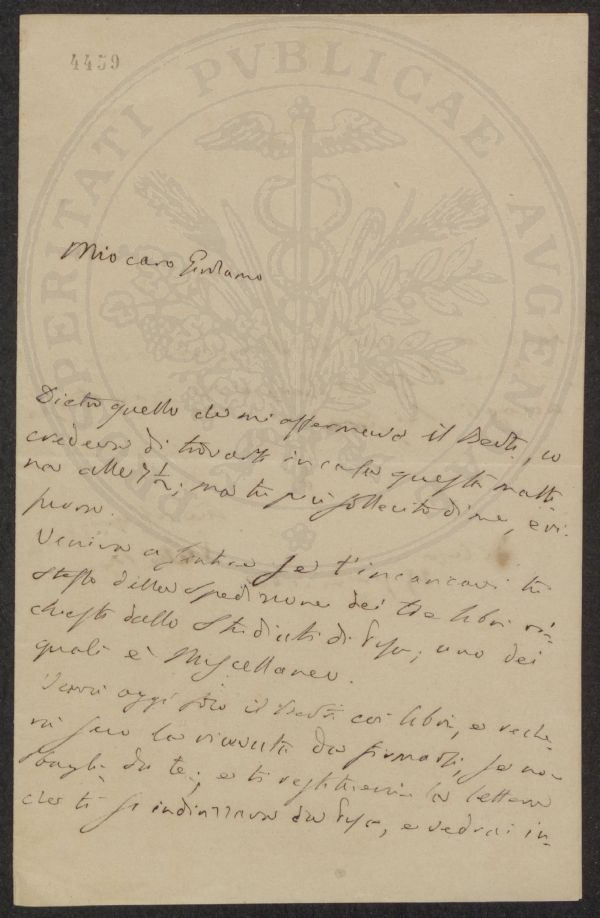 4459
PROSPERITATI PVBLICAE AVGENDAE
Mio caro Girolamo
Dietro quello che mi affermava il Betti, io
credeva di trovarti in casa questa matti
na alle 7½; ma tu più sollecito di me, eri
Veniva a sentire se t'incaricavi tu
stesso della spedizione dei tre libri ri=
chiesti dallo Studiati di Pisa; uno dei
quali è Miscellaneo.
Verrà oggi il Betti coi libri, e reche=
rà seco la ricevuta da firmarsi, se non
da te; e ti restituerà la lettera
che ti si indirizzava da Pisa, e vedrai in=